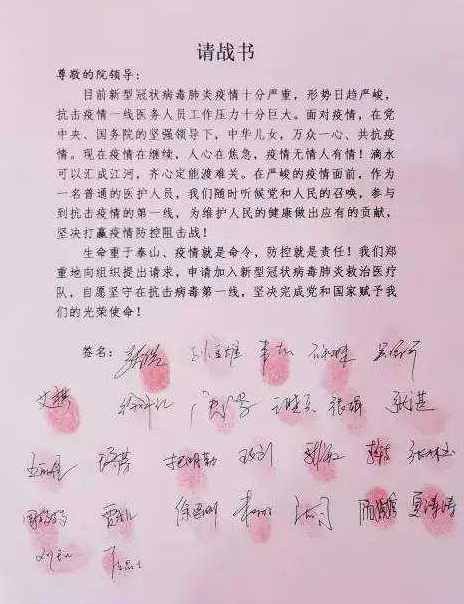 请战书
尊敬的院领导：
目前新型冠状病毒肺炎疫情十分严重，形势日趋严峻，
抗击疫情一线医务人员工作压力十分巨大。面对疫情，在党
中央、国务院的坚强领导下，中华儿女，万众一心、共抗疫
情。现在疫情在继续，人心在焦急，疫情无情人有情！滴水
可以汇成江河，齐心定能渡难关。在严峻的疫情面前，作为
一名普通的医护人员，我们随时听候党和人民的召唤，参与
到抗击疫情的第一线，为维护人民的健康做出应有的贡献，
坚决打赢疫情防控阻击战！
生命重于泰山、疫情就是命令，防控就是责任！我们郑
重地向组织提出请求，申请加入新型冠状病毒肺炎救治医疗
队，自愿坚守在抗击病毒第一线，坚决完成党和国家赋予我
们的光荣使命！
签名：
夏涛涛